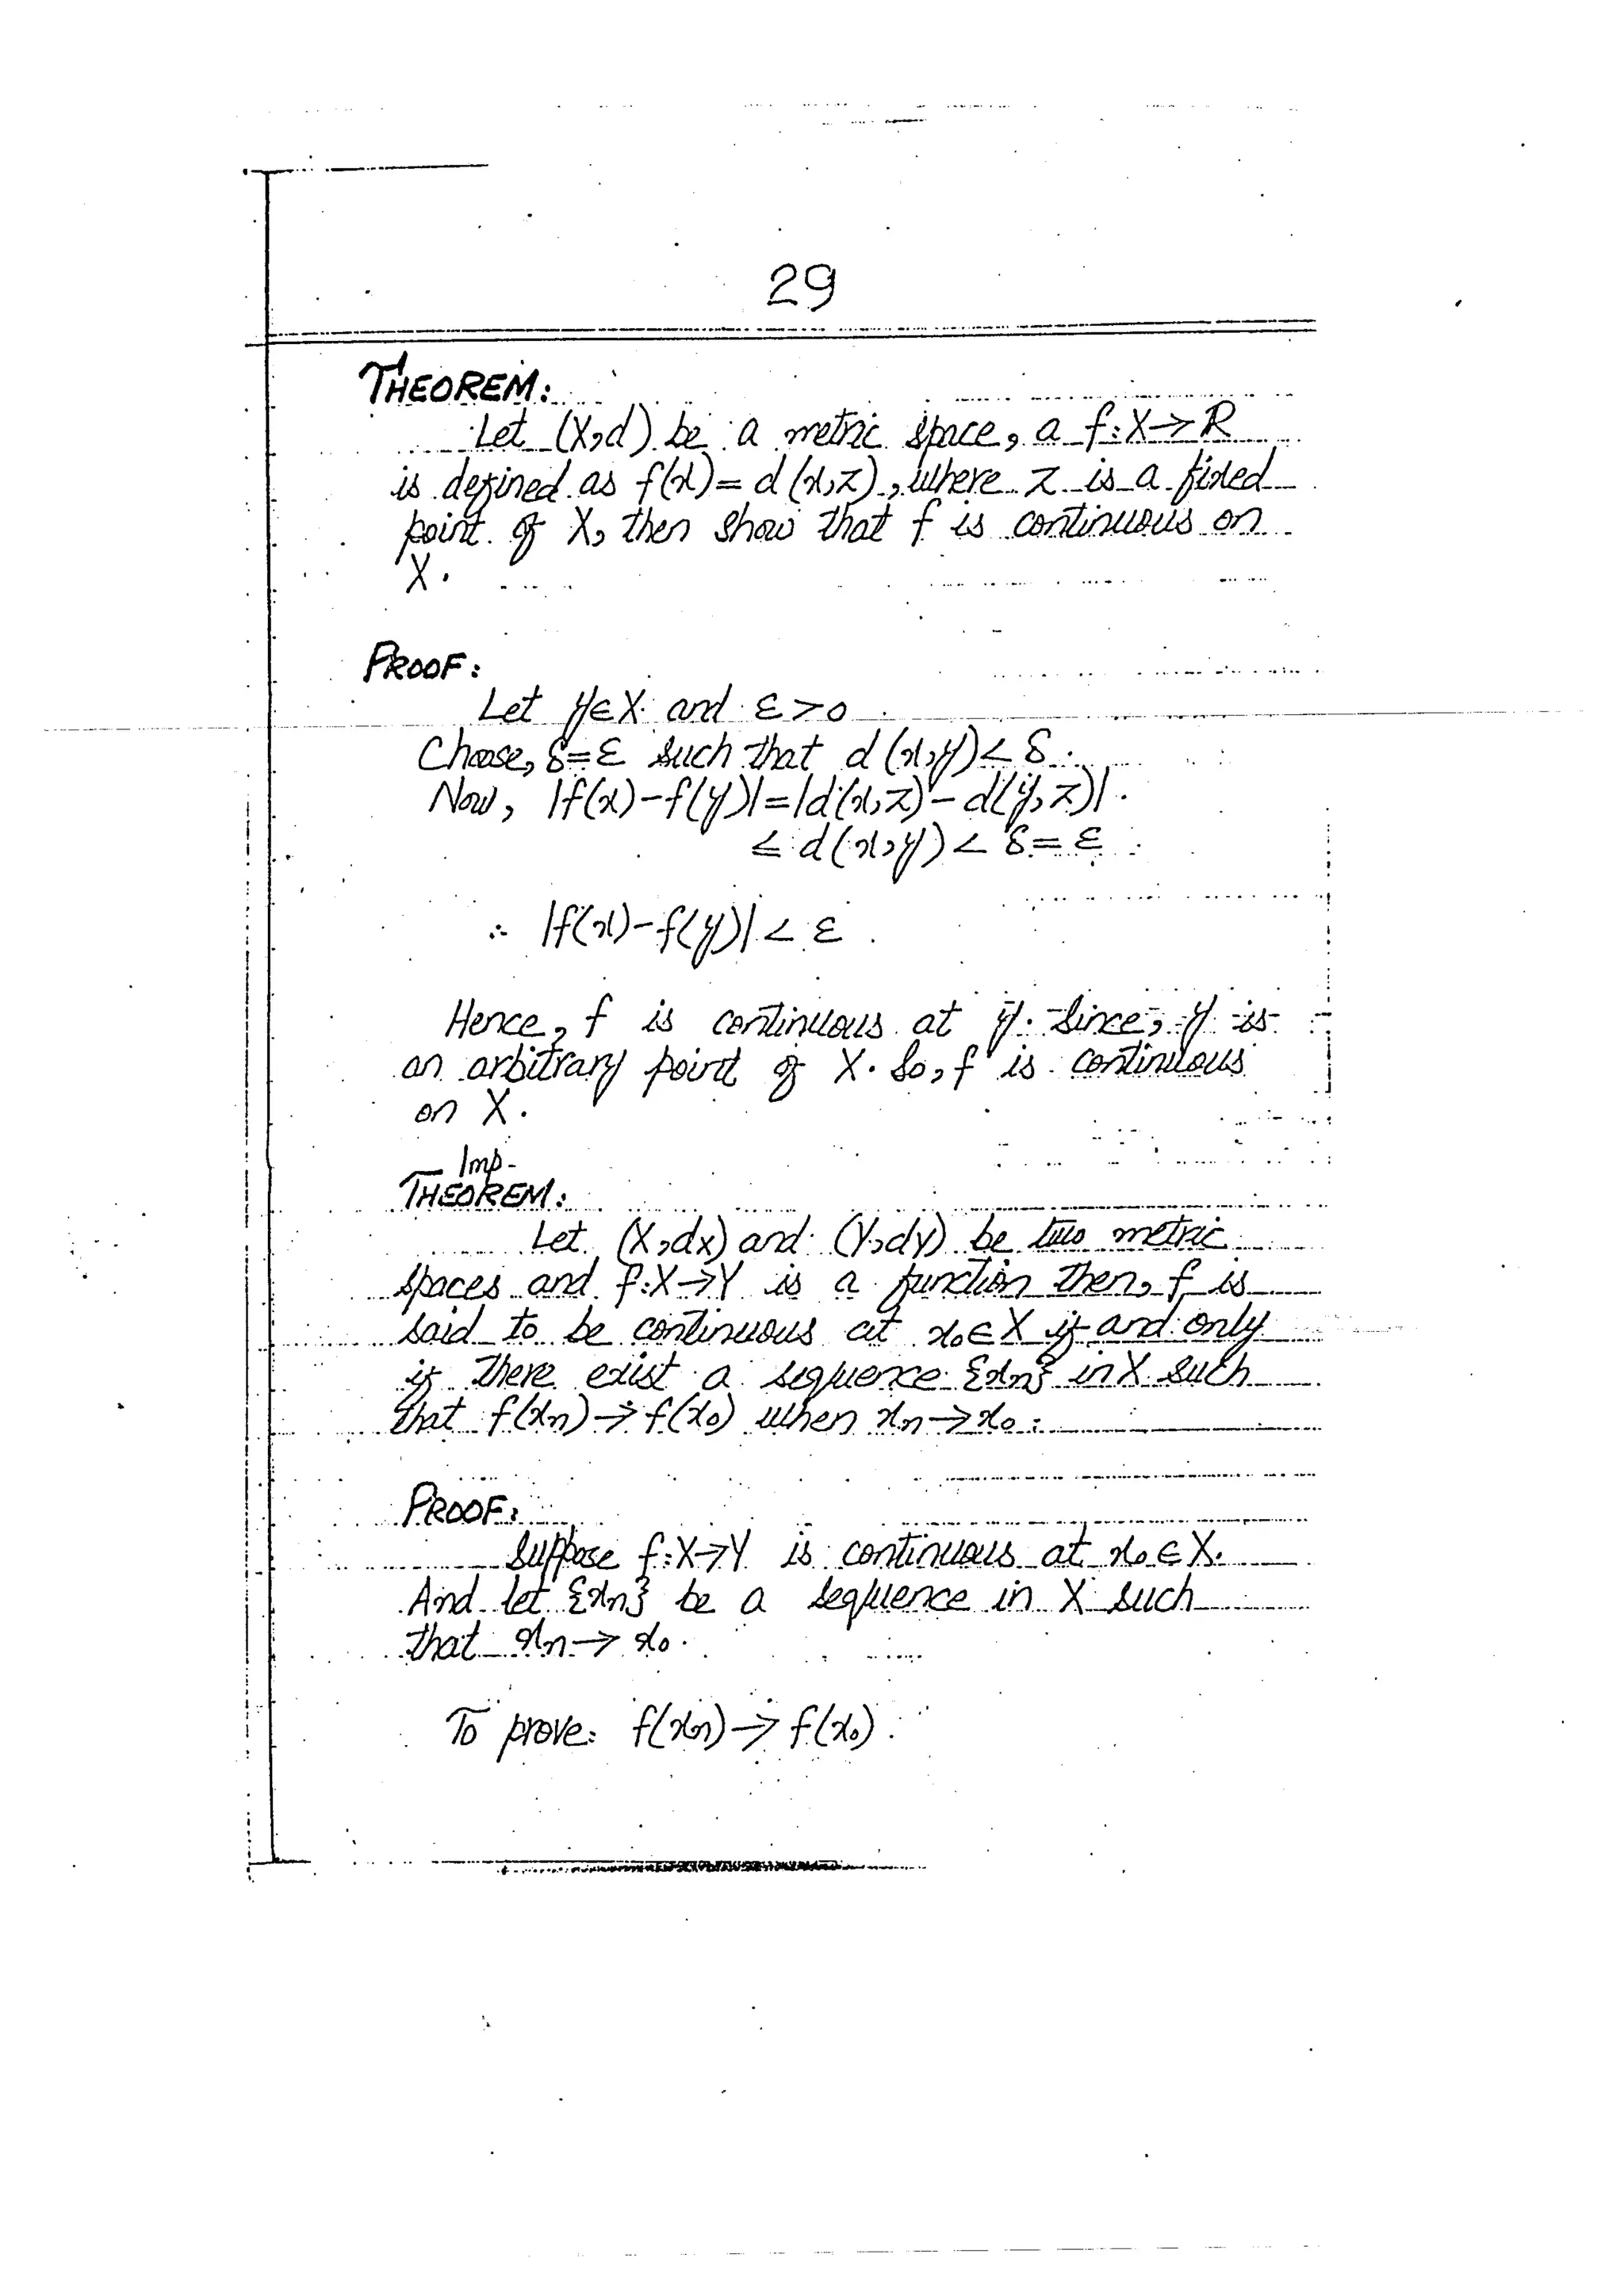 29
THEOREM:
Let (X,d) be a metric space, a f:X→R
is defined as f(x)=d(x,z), where z is a fixed
point of X, then show that f is continuous on
X.
PROOF:
Let y∈X and ε>0
Choose, δ=ε such that d(x,y)<δ.
Now, |f(x)-f(y)|=|d(x,z)-d(y,z)|.
≤ d(x,y) < δ=ε
∴ |f(x)-f(y)| < ε.
Hence, f is continuous at y. Since, y is
an arbitrary point of X. So, f is continuous
on X.
Imp-
THEOREM:
Let (X,dx) and (Y,dy) be two metric
spaces and f:X→Y is a function then, f is
said to be continuous at x₀∈X if and only
if there exist a sequence {xn} in X such
that f(xn)→f(x₀) when xn→x₀.
PROOF:
Suppose f:X→Y is continuous at x₀∈X.
And let {xn} be a sequence in X such
that xn→x₀.
To prove: f(xn)→f(x₀).